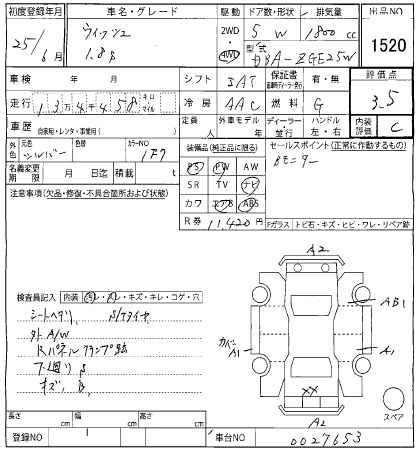 初度登録年月 車名・グレード 駆動 ドア数・形状 排気量 出品NO
25/6月 ウィッシュ 1.8S 2WD 4WD 5 W 1800cc 1520
型式 DBA-ZGE25W
車検 年 月 シフト IAT 保証書 有・無 評価点 3.5
走行 13万4千458 キロ マイル 冷房 AAC 燃料 G
車歴 自家用・レンタ・事業用( ) 定員 人 外車モデル 年 ディーラー・並行 ハンドル 左・右 内装評価 C
外色 元色 シルバー 色 カラーNO 1F7 装備品(純正品に限る) セールスポイント(正常に作動するもの)
PS PW AW Bモニター
名義変更期限 月 日迄 積載 t SR TV ナビ
注意事項(欠品・修復・不具合箇所および状態) カワ エアB ABS
R券 11,420円 Fガラス トビ石・キズ・ヒビ・ワレ・リペア跡
A2
検査員記入 内装 キズ・キレ・コゲ・穴
AB1
シートヘタリ S/タイヤ
外A/W
カバーA1 A1
Rパネルクランプ跡
下廻りS
キズ、B、
XX
A2
スペア
長さ cm 幅 cm 高さ cm
登録NO 車台NO 0027653